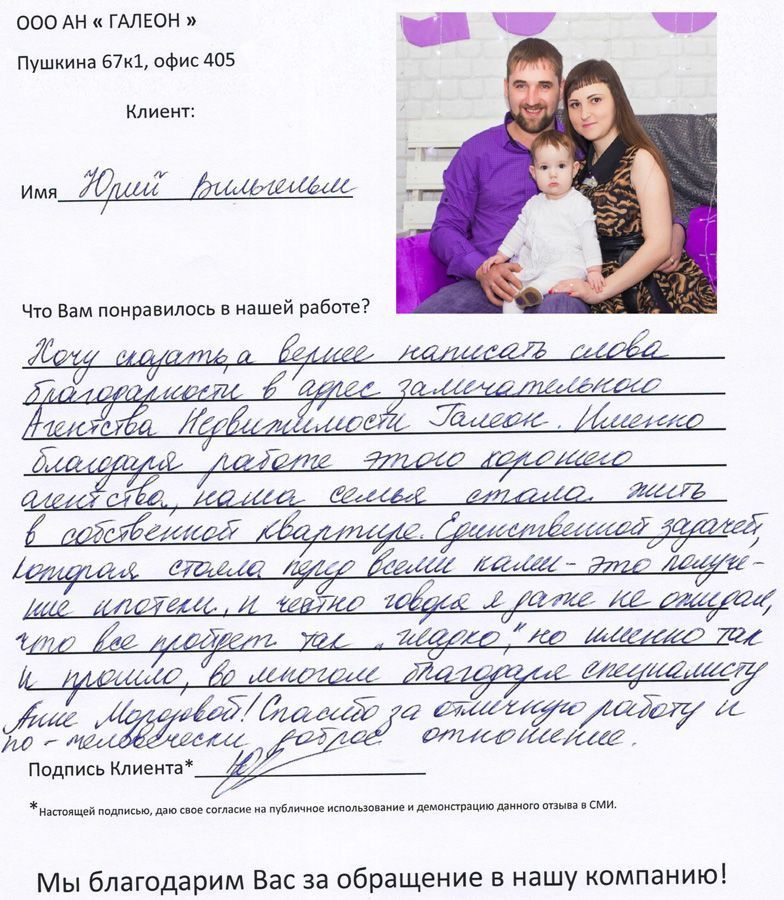 ООО АН « ГАЛЕОН »
Пушкина 67к1, офис 405
Клиент:
Имя Юрий Вильгельм
Что Вам понравилось в нашей работе?
Хочу сказать, а вернее написать слова
благодарности в адрес замечательного
Агентства Недвижимости Галеон. Именно
благодаря работе этого хорошего
агентства, наша семья стала жить
в собственной квартире. Единственной задачей,
которая стояла перед всеми нами - это получе-
ние ипотеки, и честно говоря я даже не ожидал,
что все пройдет так „гладко", но именно так
и прошло, во многом благодаря специалисту
Анне Мордовой! Спасибо за отличную работу и
по-человечески доброе отношение.
Подпись Клиента*
*Настоящей подписью, даю свое согласие на публичное использование и демонстрацию данного отзыва в СМИ.
Мы благодарим Вас за обращение в нашу компанию!